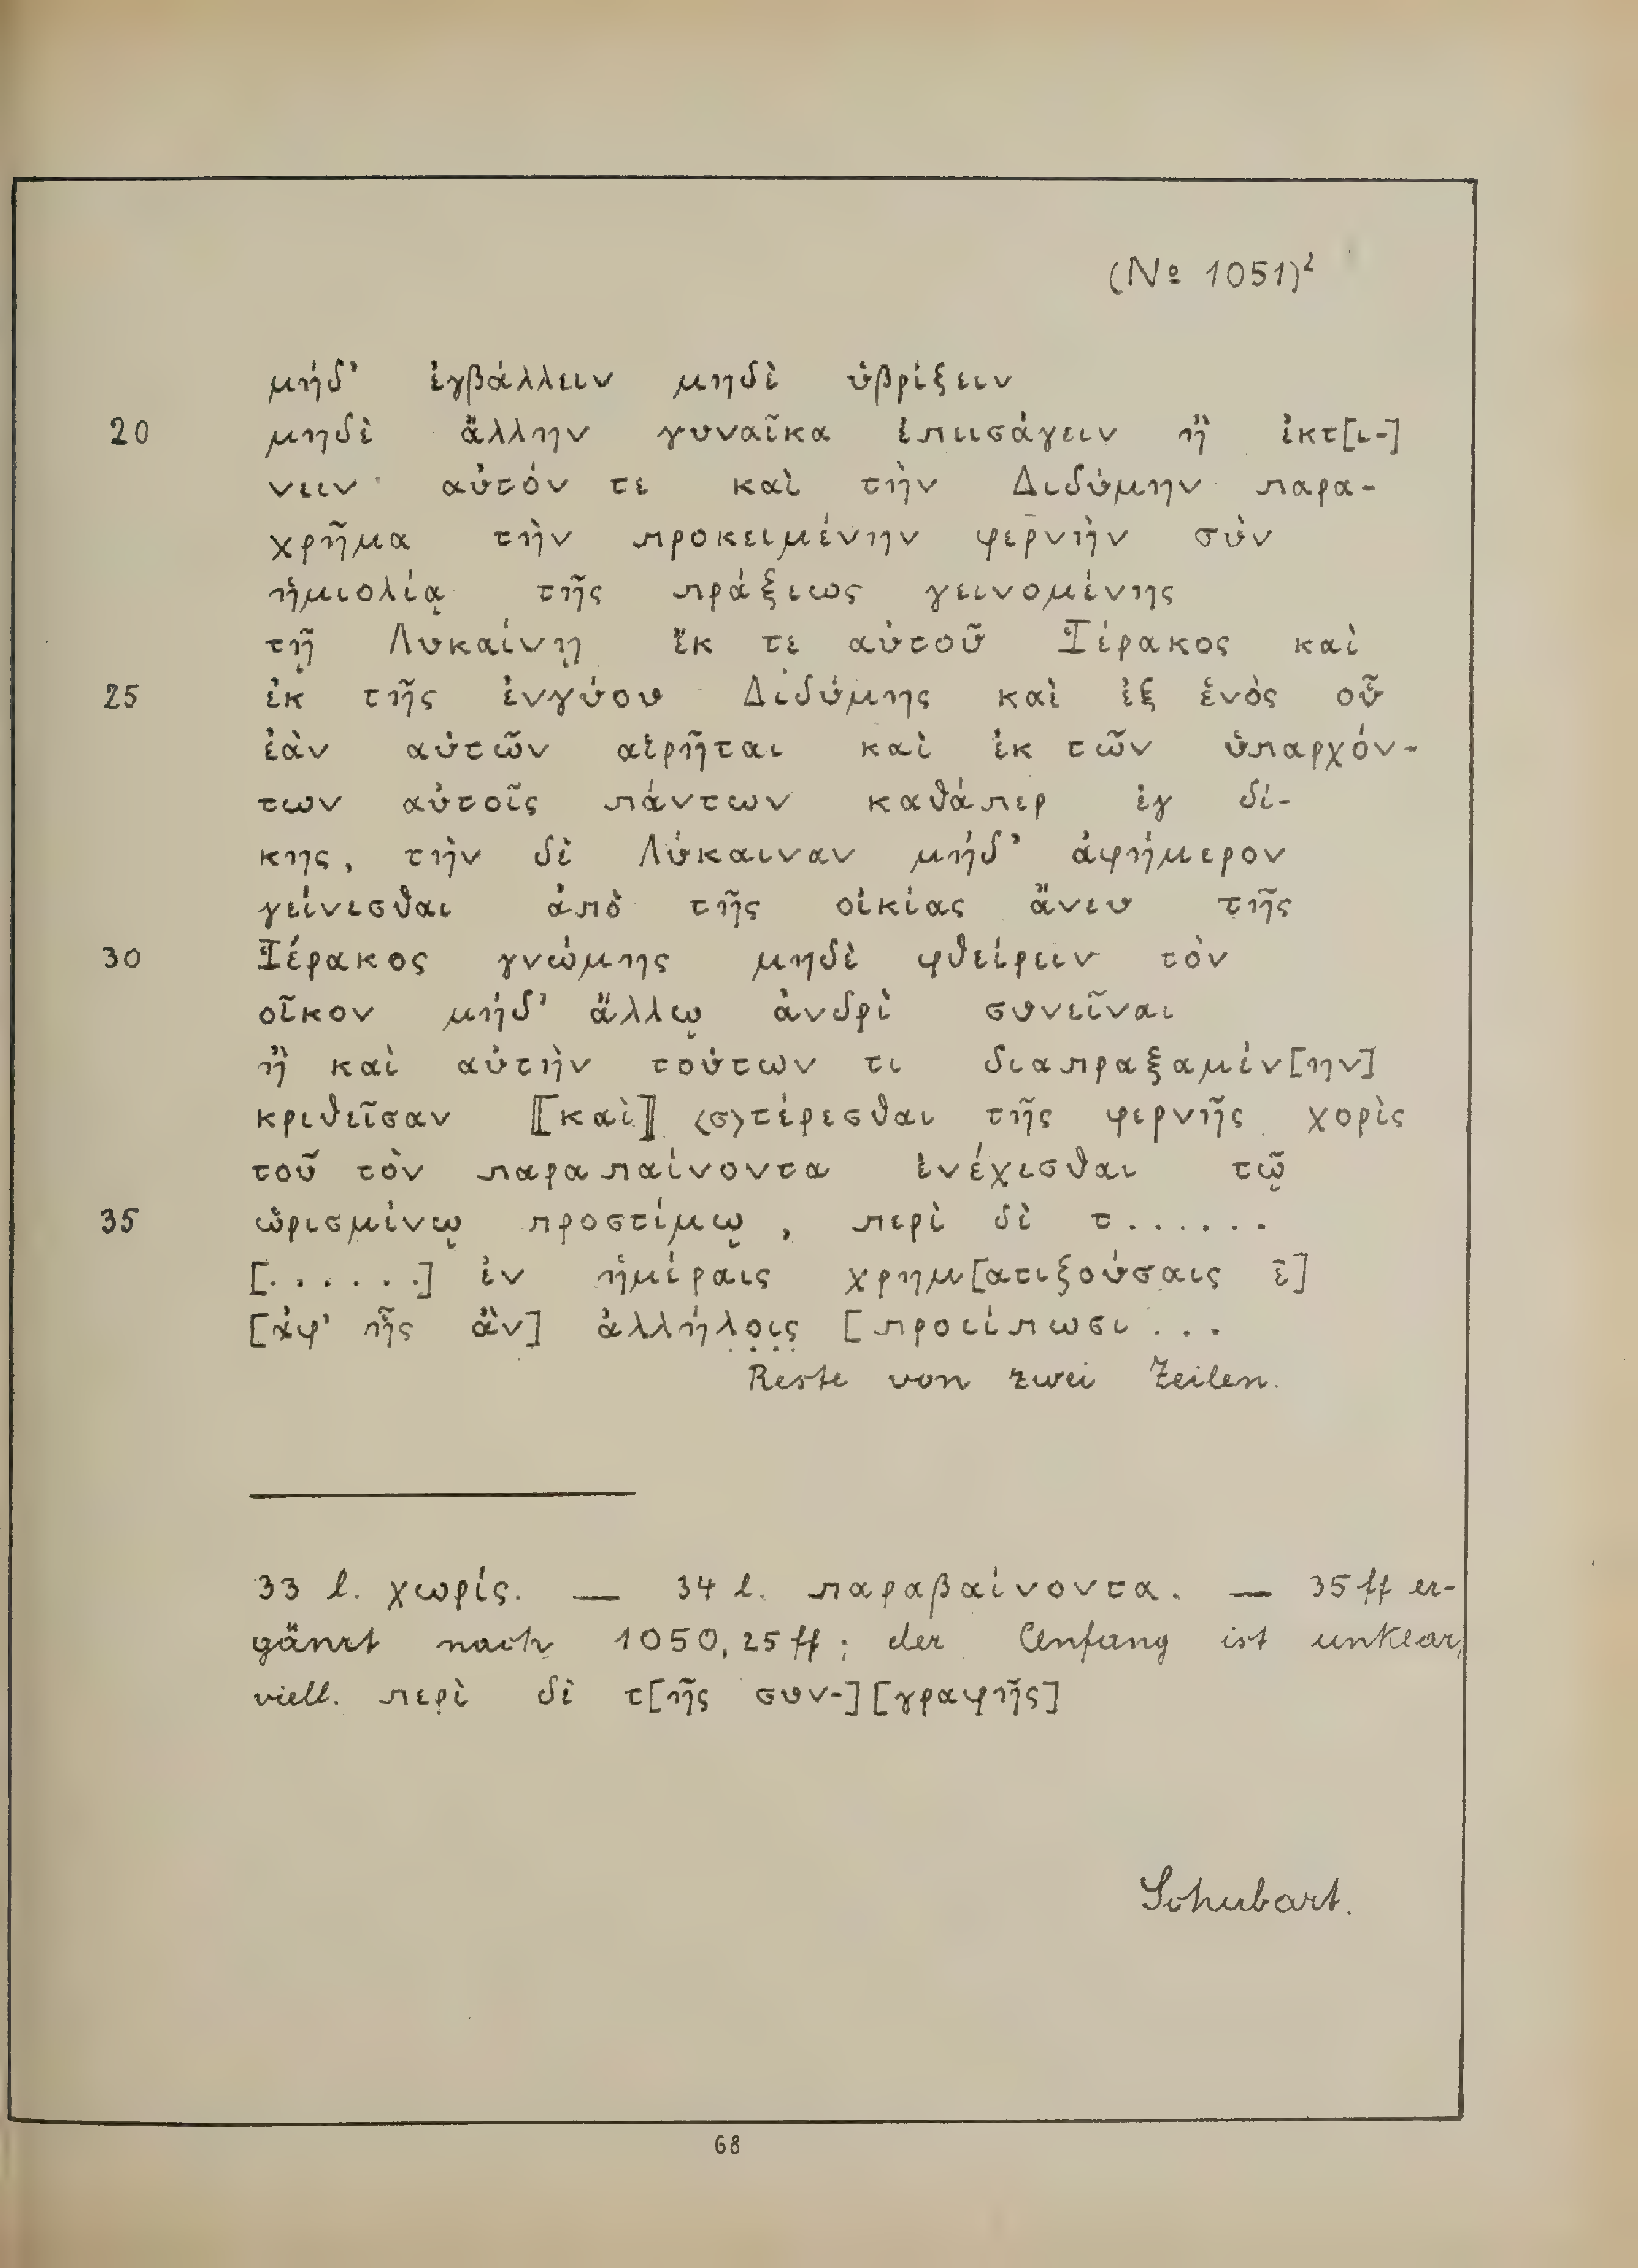 (Nº 1051)²
μήδ' ἐγβάλλειν μηδὲ ὑβρίζειν
20 μηδὲ ἄλλην γυναῖκα ἐπεισάγειν ἢ ἐκτ[ι-]
νειν αὐτόν τε καὶ τὴν Διδύμην παρα-
χρῆμα τὴν προκειμένην φερνὴν σὺν
ἡμιολίᾳ τῆς πράξεως γεινομένης
τῇ Λυκαίνῃ ἔκ τε αὐτοῦ Ἱέρακος καὶ
25 ἐκ τῆς ἐνγύου Διδύμης καὶ ἐξ ἑνὸς οὗ
ἐὰν αὐτῶν αἱρῆται καὶ ἐκ τῶν ὑπαρχόν-
των αὐτοῖς πάντων καθάπερ ἐγ δί-
κης, τὴν δὲ Λύκαιναν μήδ' ἀφήμερον
γείνεσθαι ἀπὸ τῆς οἰκίας ἄνευ τῆς
30 Ἱέρακος γνώμης μηδὲ φθείρειν τὸν
οἶκον μήδ' ἄλλῳ ἀνδρὶ συνεῖναι
ἢ καὶ αὐτὴν τούτων τι διαπραξαμέν[ην]
κριθεῖσαν ⟦καὶ⟧ ⟨σ⟩τέρεσθαι τῆς φερνῆς χορὶς
τοῦ τὸν παραπαίνοντα ἐνέχεσθαι τῷ
35 ὡρισμένῳ προστίμῳ, περὶ δὲ τ......
[......] ἐν ἡμέραις χρημ[ατιζούσαις ε̄]
[ἀφ' ἧς ἂν] ἀλλήλ̣ο̣ι̣ς̣ [προείπωσι ...
Reste von zwei Zeilen.
33 l. χωρίς. — 34 l. παραβαίνοντα. — 35 ff er-
gänzt nach 1050, 25 ff; der Anfang ist unklar,
viell. περὶ δὲ τ[ῆς συν-][γραφῆς]
Schubart.
68